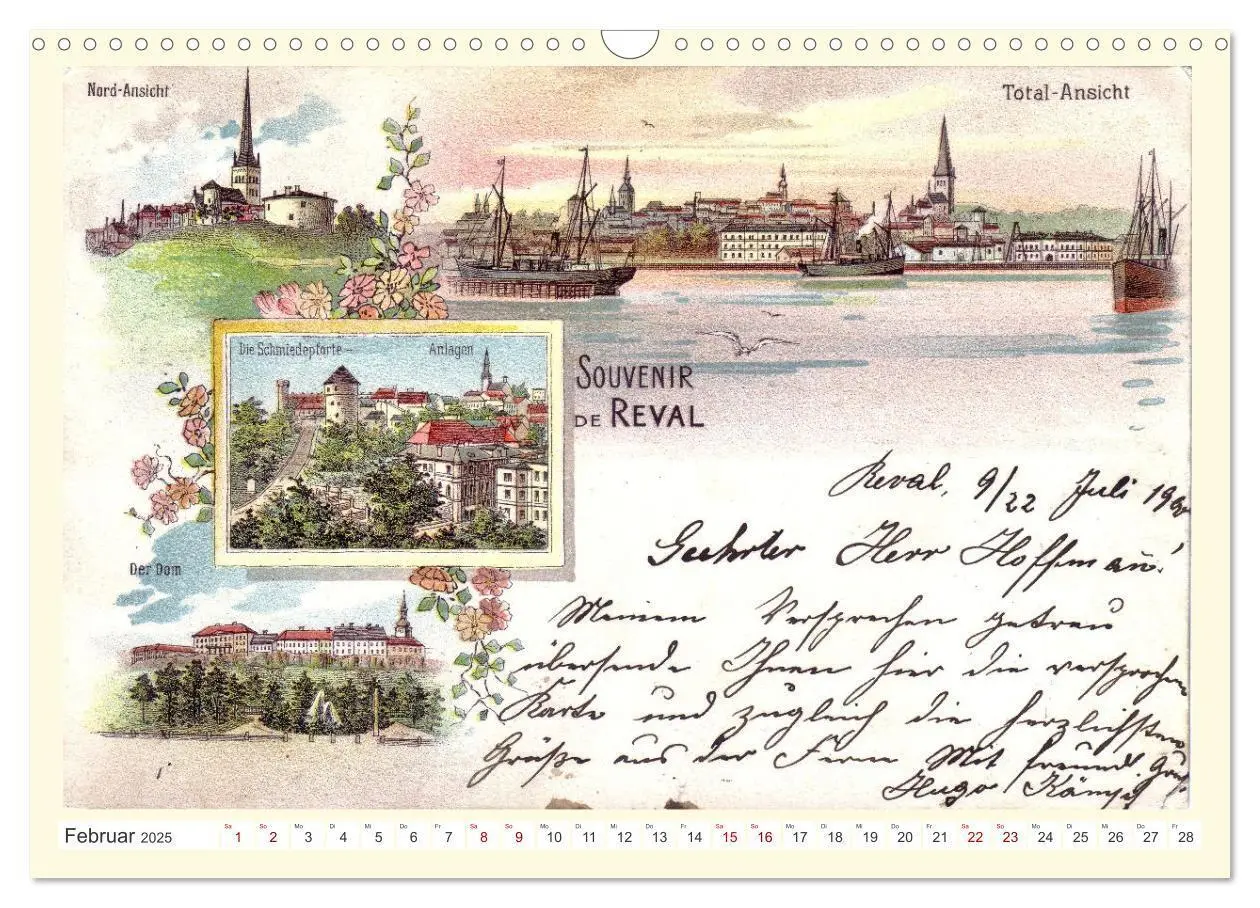 Nord-Ansicht
Total-Ansicht
Die Schmiedepforte – Anlagen
SOUVENIR
DE REVAL
Der Dom
Reval, 9/22 Juli
Geehrter Herr Hoffmann!
Meinem Versprechen getreu
übersende Ihnen hier die versprochene
Karte und zugleich die herzlichsten
Grüße aus der Ferne Mit freundl. Gruß
Hugo
Februar 2025
Sa So Mo Di Mi Do Fr Sa So Mo Di Mi Do Fr Sa So Mo Di Mi Do Fr Sa So Mo Di Mi Do Fr
1 2 3 4 5 6 7 8 9 10 11 12 13 14 15 16 17 18 19 20 21 22 23 24 25 26 27 28